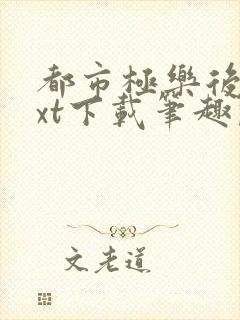 都市極樂後
xt下載筆趣
文老道